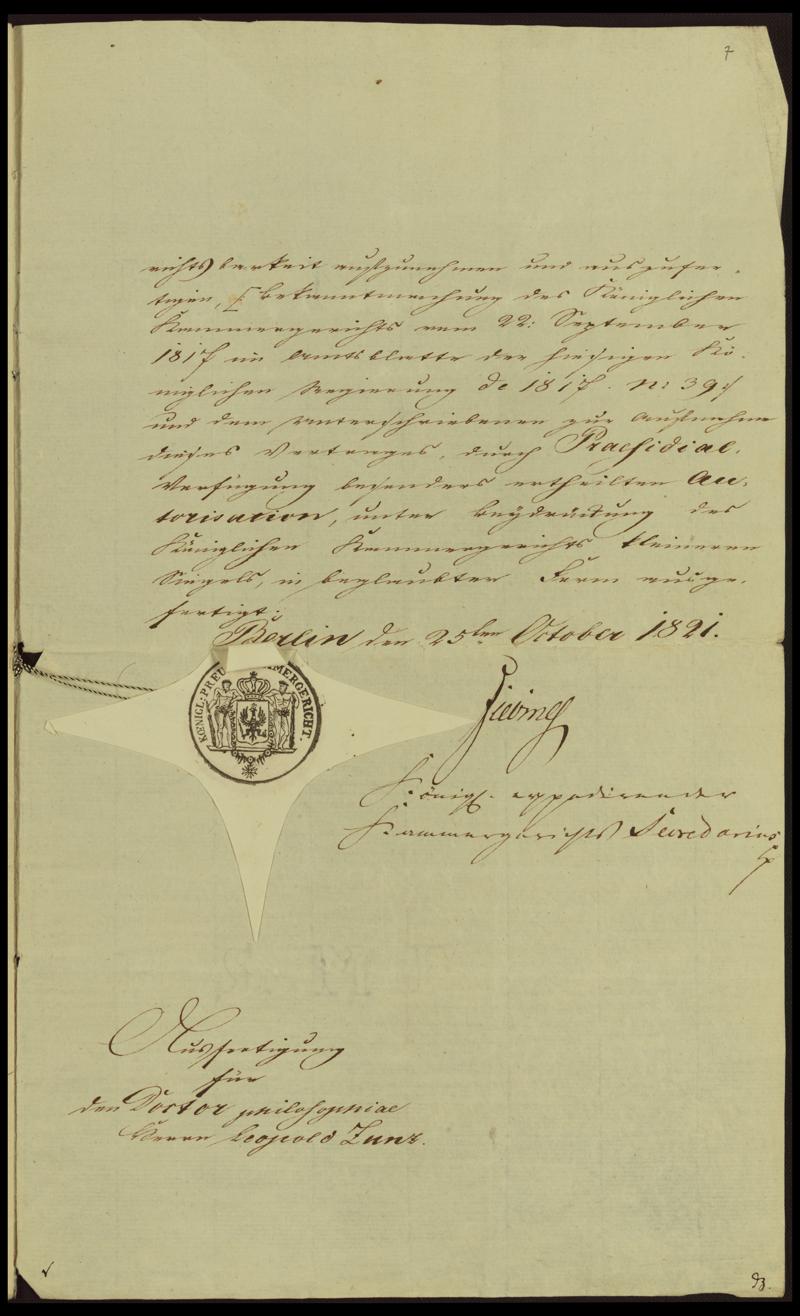 7
richtsbarkeit aufzunehmen und auszufer-
tigen, /: Bekanntmachung des Königlichen
Kammergerichts vom 22: September
1817 im Amtsblatte der hiesigen Kö-
niglichen Regierung de 1817. No 39 :/
und dem Unterschriebenen zur Aufnahme
dieses Vertrages, durch Praesidial-
Verfügung besonders ertheilten Au-
torisation, unter Beydrückung des
Königlichen Kammergerichts kleineren
Siegels, in beglaubter Form ausge-
fertigt.
Berlin den 25ten October 1821.
KOENIGL: PREU MERGERICHT.
Königl. expedirender
Kammergerichts Secretarius
Ausfertigung
für
den Doctor philosophiae
Herrn Leopold Zunz.